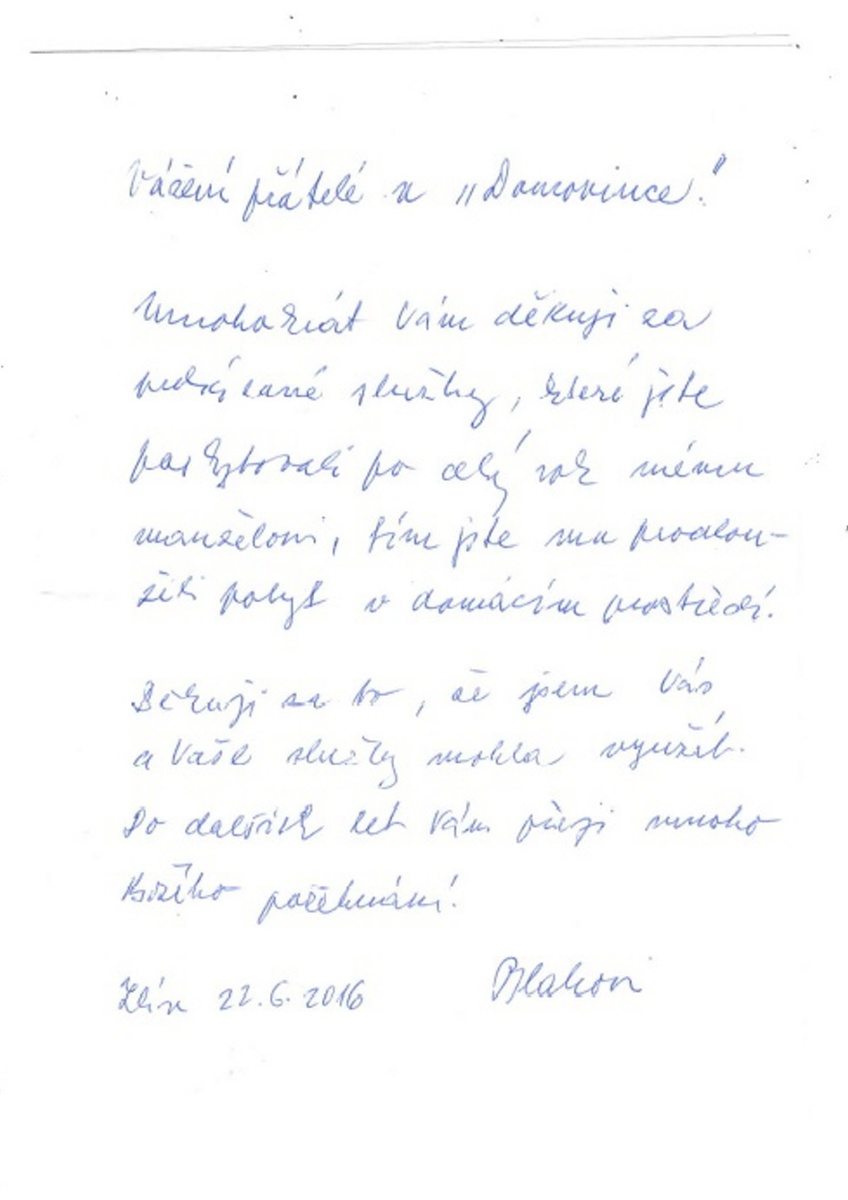 Vážení přátelé z „Domovince!"
Mnohokrát Vám děkuji za
služby, které jste
poskytovali po celý rok mému
manželovi, tím jste mu prodlou-
žili pobyt v domácím prostředí.
Děkuji za to, že jsem Vás
a Vaše služby mohla využít.
Do dalších let Vám přeji mnoho
Božího požehnání!
Zlín 22.6.2016